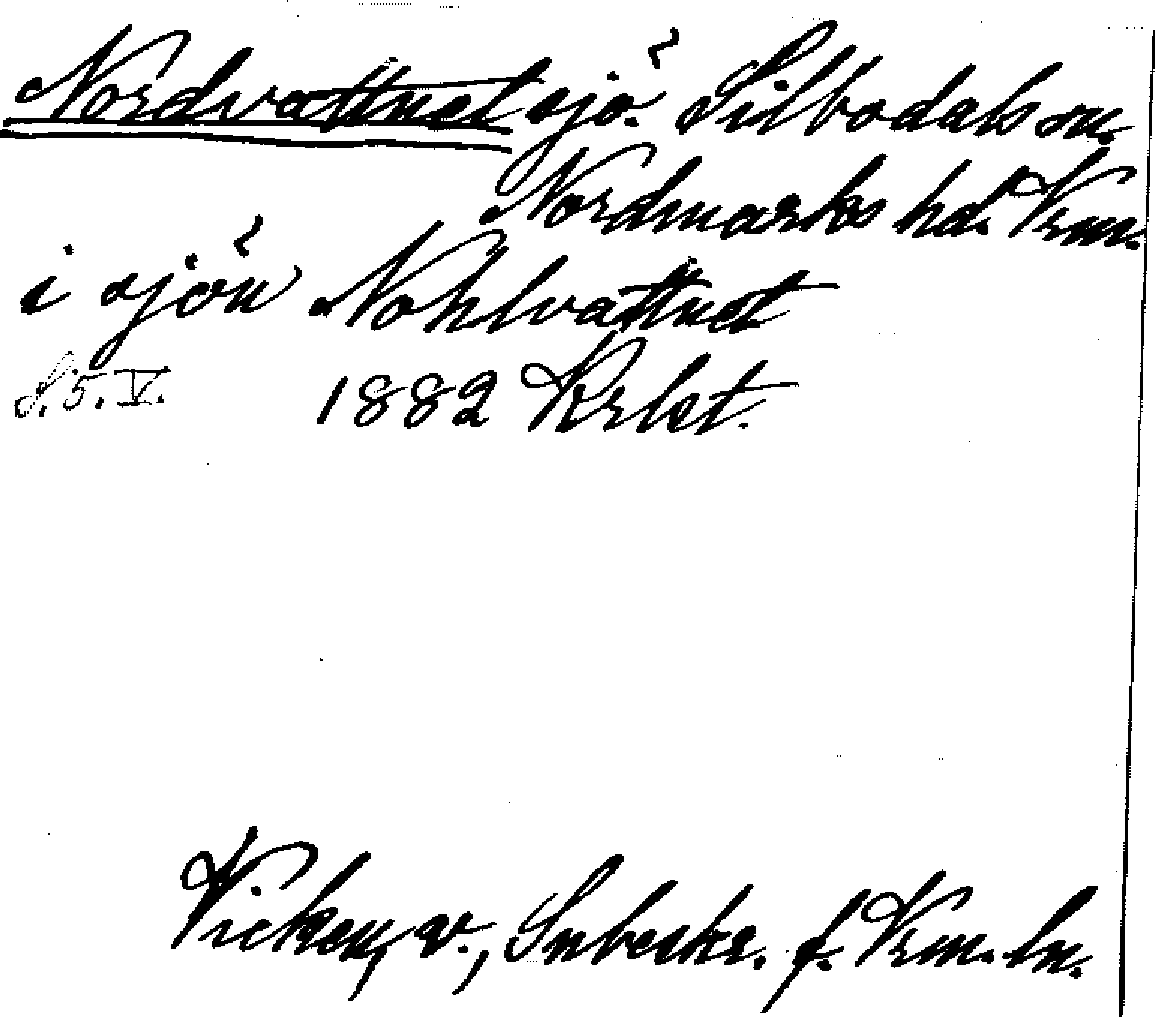 Nordvattnet sjö. Silbodals sn.
Nordmarks hd. Vrm.
i sjön Nohlvattnet
S. 5. V. 1882 Krlst.
Vicken, v., Snbeskr. f. Vrm. ln.